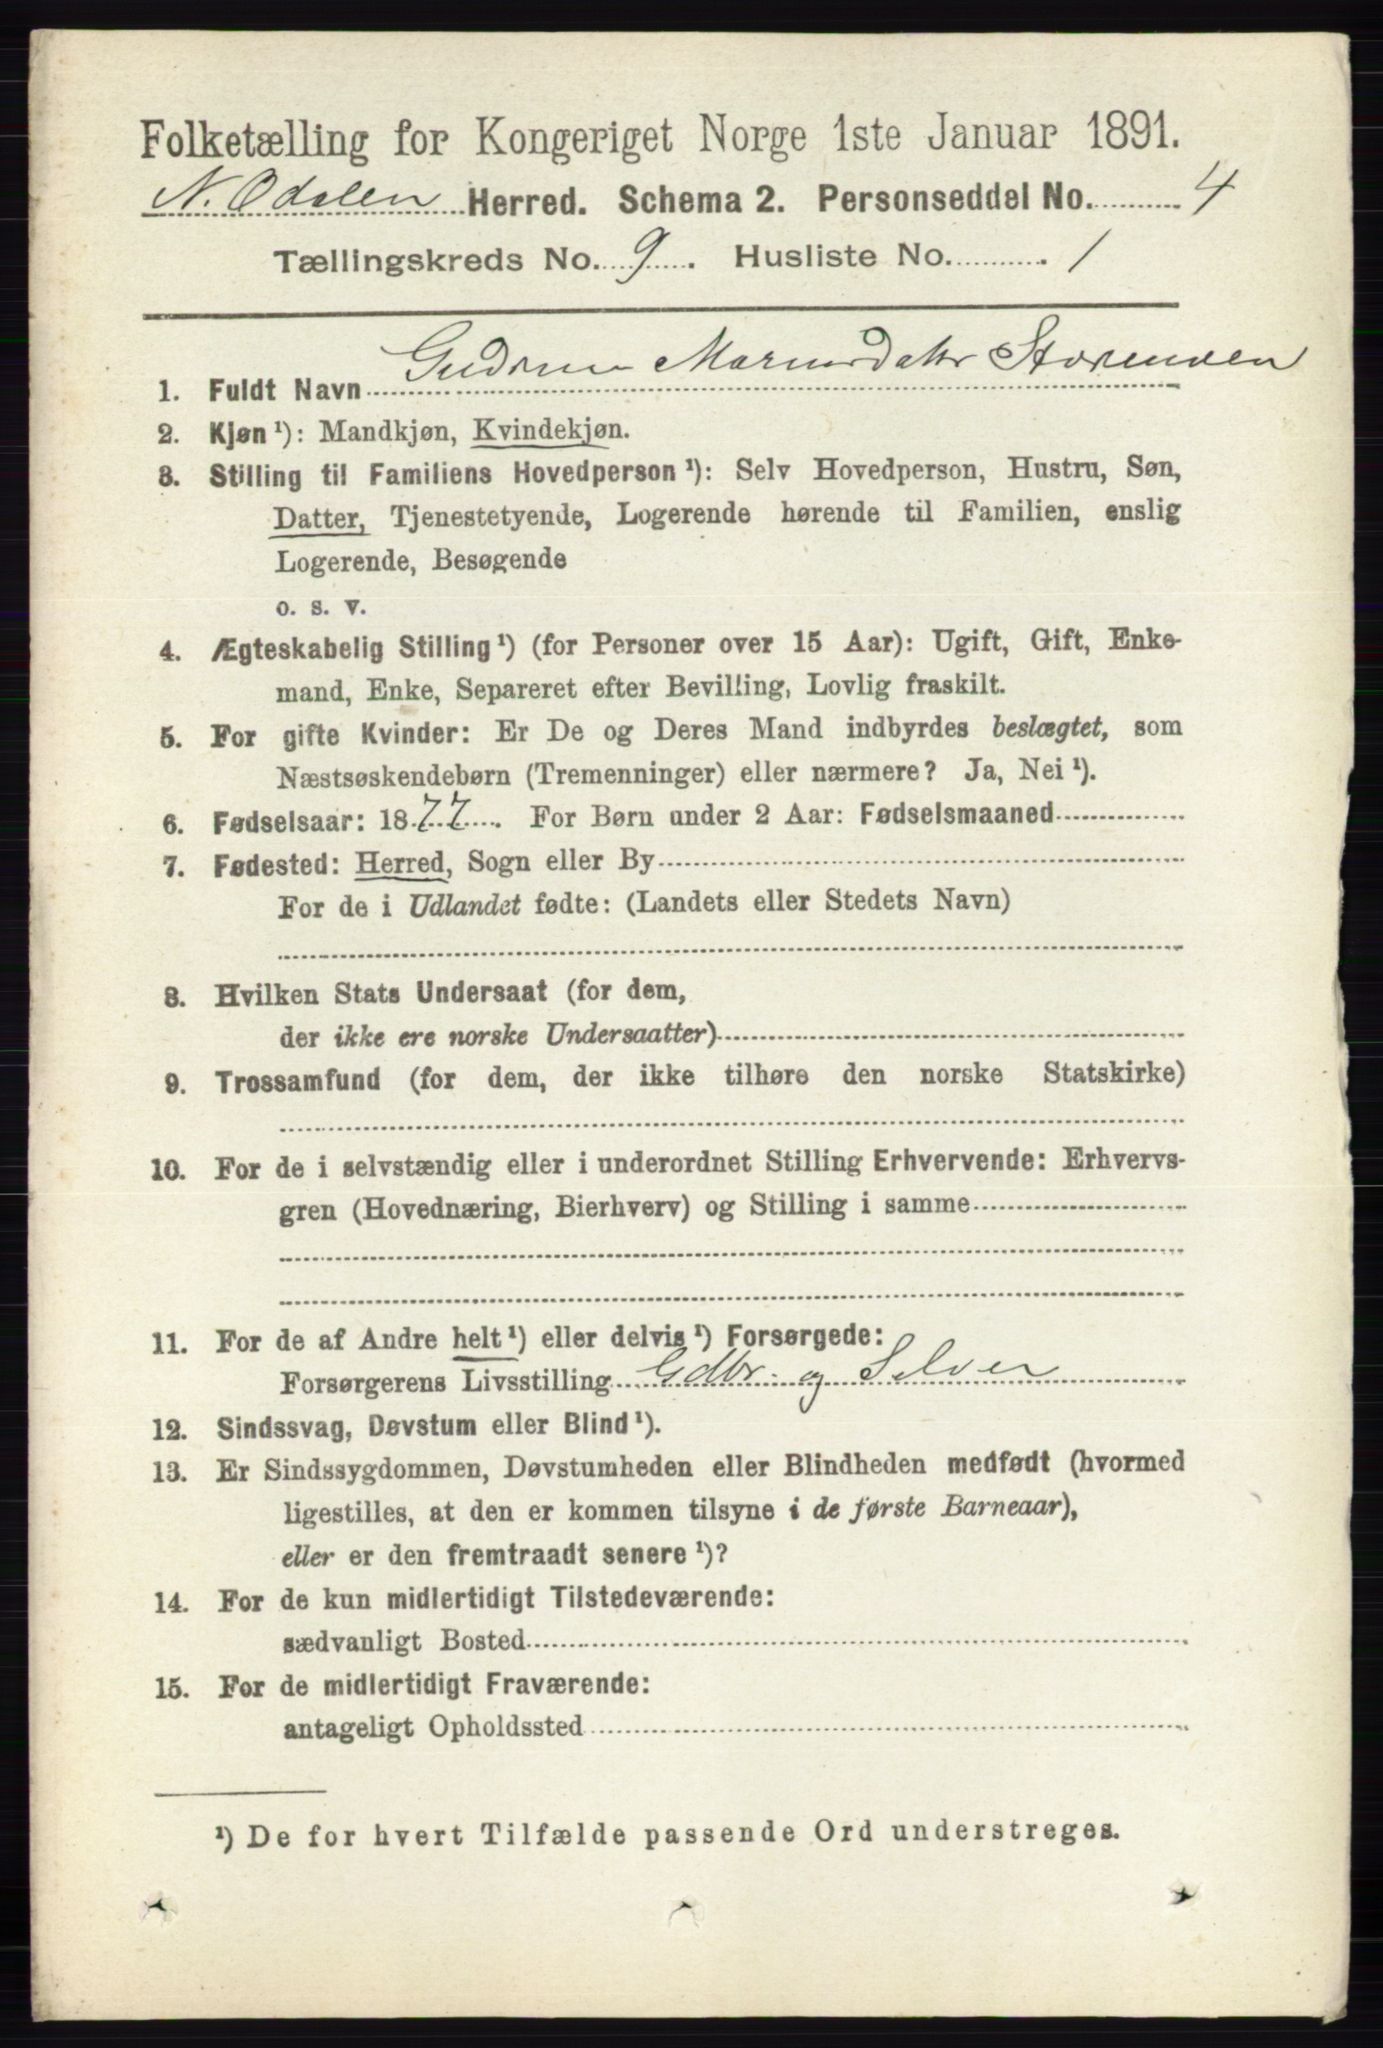 Folketælling for Kongeriget Norge 1ste Januar 1891.
N. Odalen Herred. Schema 2. Personseddel No. 4
Tællingskreds No. 9. Husliste No. 1
1. Fuldt Navn Gudrun Storenven
2. Kjøn ¹): Mandkjøn, Kvindekjøn.
3. Stilling til Familiens Hovedperson ¹): Selv Hovedperson, Hustru, Søn,
Datter, Tjenestetyende, Logerende hørende til Familien, enslig
Logerende, Besøgende
o. s. v.
4. Ægteskabelig Stilling ¹) (for Personer over 15 Aar): Ugift, Gift, Enke-
mand, Enke, Separeret efter Bevilling, Lovlig fraskilt.
5. For gifte Kvinder: Er De og Deres Mand indbyrdes beslægtet, som
Næstsøskendebørn (Tremenninger) eller nærmere? Ja, Nei ¹).
6. Fødselsaar: 1877. For Børn under 2 Aar: Fødselsmaaned
7. Fødested: Herred, Sogn eller By
For de i Udlandet fødte: (Landets eller Stedets Navn)
8. Hvilken Stats Undersaat (for dem,
der ikke ere norske Undersaatter)
9. Trossamfund (for dem, der ikke tilhøre den norske Statskirke)
10. For de i selvstændig eller i underordnet Stilling Erhvervende: Erhvervs-
gren (Hovednæring, Bierhverv) og Stilling i samme
11. For de af Andre helt ¹) eller delvis ¹) Forsørgede:
Forsørgerens Livsstilling Gdbr. og Selver
12. Sindssvag, Døvstum eller Blind ¹).
13. Er Sindssygdommen, Døvstumheden eller Blindheden medfødt (hvormed
ligestilles, at den er kommen tilsyne i de første Barneaar),
eller er den fremtraadt senere ¹)?
14. For de kun midlertidigt Tilstedeværende:
sædvanligt Bosted
15. For de midlertidigt Fraværende:
antageligt Opholdssted
¹) De for hvert Tilfælde passende Ord understreges.